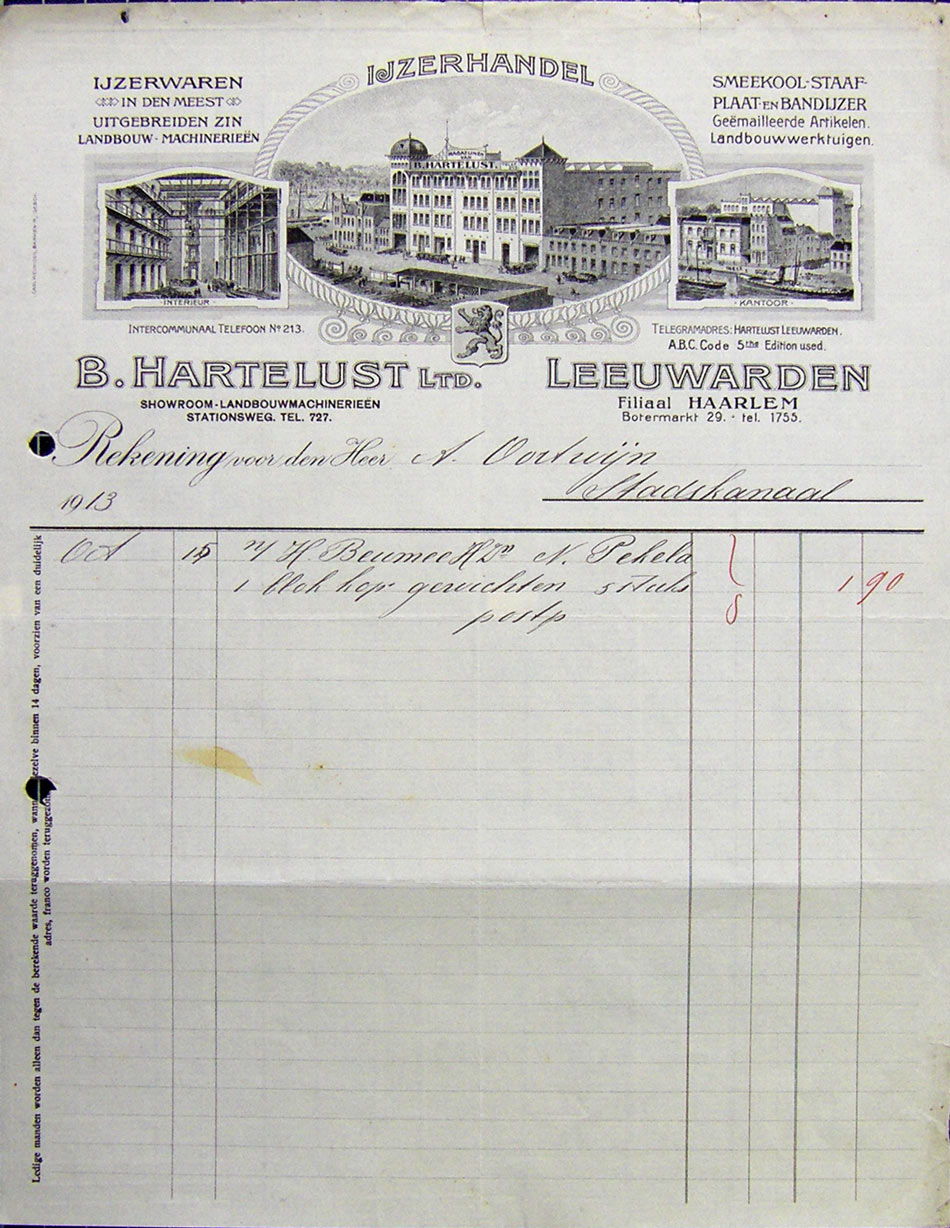 IJZERHANDEL
IJZERWAREN
IN DEN MEEST
UITGEBREIDEN ZIN
LANDBOUW-MACHINERIEËN
SMEEKOOL-STAAF-
PLAAT EN BANDIJZER
Geëmailleerde Artikelen.
Landbouwwerktuigen.
MAGAZIJNEN
VAN
B. HARTELUST
INTERIEUR
KANTOOR
INTERCOMMUNAAL TELEFOON No 213.
TELEGRAMADRES: HARTELUST LEEUWARDEN.
A.B.C. Code 5the Edition used.
B. HARTELUST LTD. LEEUWARDEN
SHOWROOM-LANDBOUWMACHINERIEËN
STATIONSWEG. TEL. 727.
Filiaal HAARLEM
Botermarkt 29. - tel. 1755.
Rekening voor den Heer A. Oortwijn
Stadskanaal
1913
Oct 15 n/ H. Beumee HDn N. Pekela
1 blok kop gewichten 5 stuks 1 90
postp
Ledige manden worden alleen dan tegen de berekende waarde teruggenomen, wanneer dezelve binnen 14 dagen, voorzien van een duidelijk
adres, franco worden teruggezonden